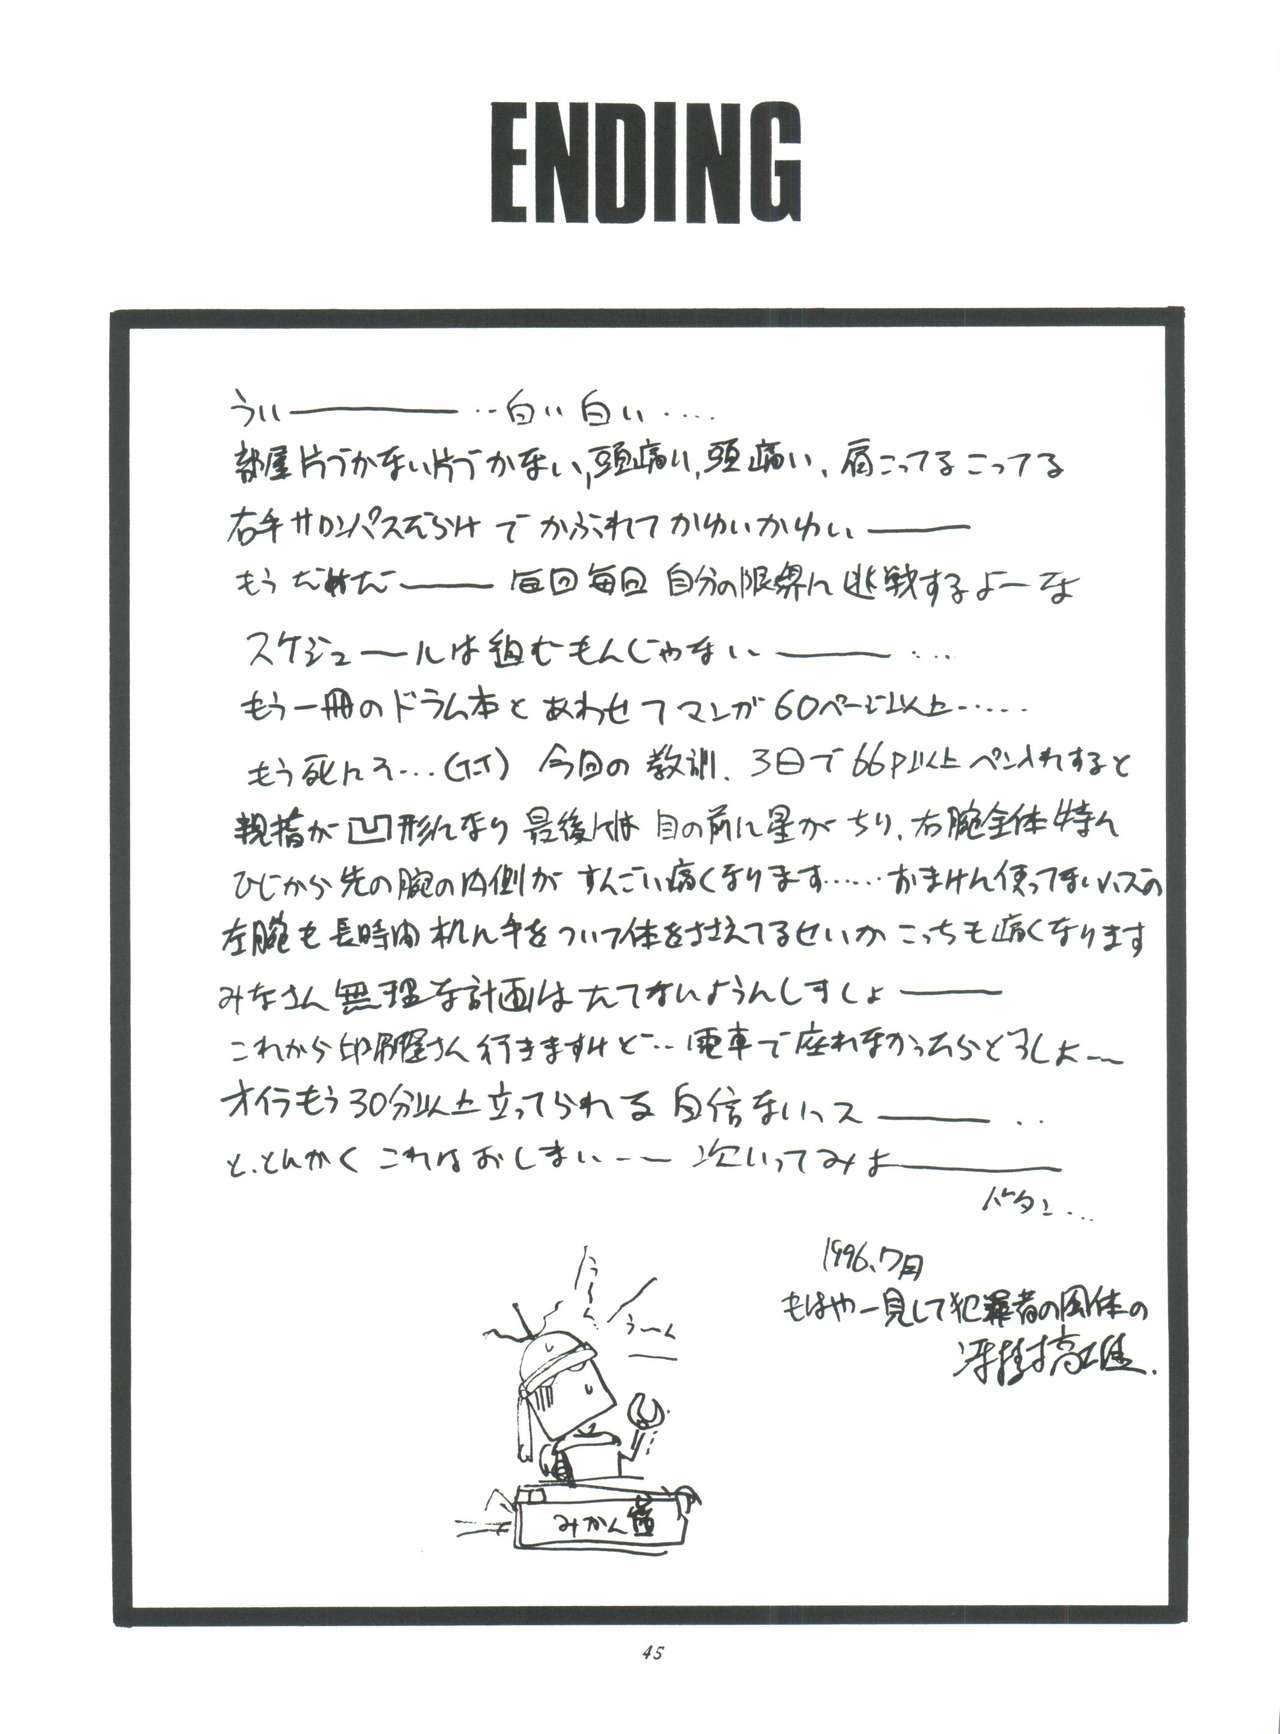 ENDING
うい―――‥白い白い‥‥
部屋片づかない片づかない,頭痛い,頭痛い、肩こってるこってる
右手サロンパスだらけでかぶれてかゆいかゆい――
もうだめだ――毎回毎回自分の限界に挑戦するよーな
スケジュールは組むもんじゃない――…
もう一冊のドラム本とあわせてマンガ60ページ以上……
もう死んで…(T-T) 今回の教訓、3日で66P以上ペン入れすると
親指が凹形になり最後には目の前に星がちり、右腕全体特に
ひじから先の腕の内側がすんごい痛くなります……おまけに使ってないハズの
左腕も長時間机に手をついて体をささえてるせいかこっちも痛くなります
みなさん無理な計画はたてないようにしましょ――
これから印刷屋さん行きますけど‥電車で座れなかったらどうしよ〜
オイラもう30分以上立ってられる自信ないっス――‥
と、とにかくこれはおしまい〜〜次いってみよ――
バタン…
1996、7月
もはや一見して犯罪者の風体の
冴樹高雄.
うーん
うーん
みかん箱
45